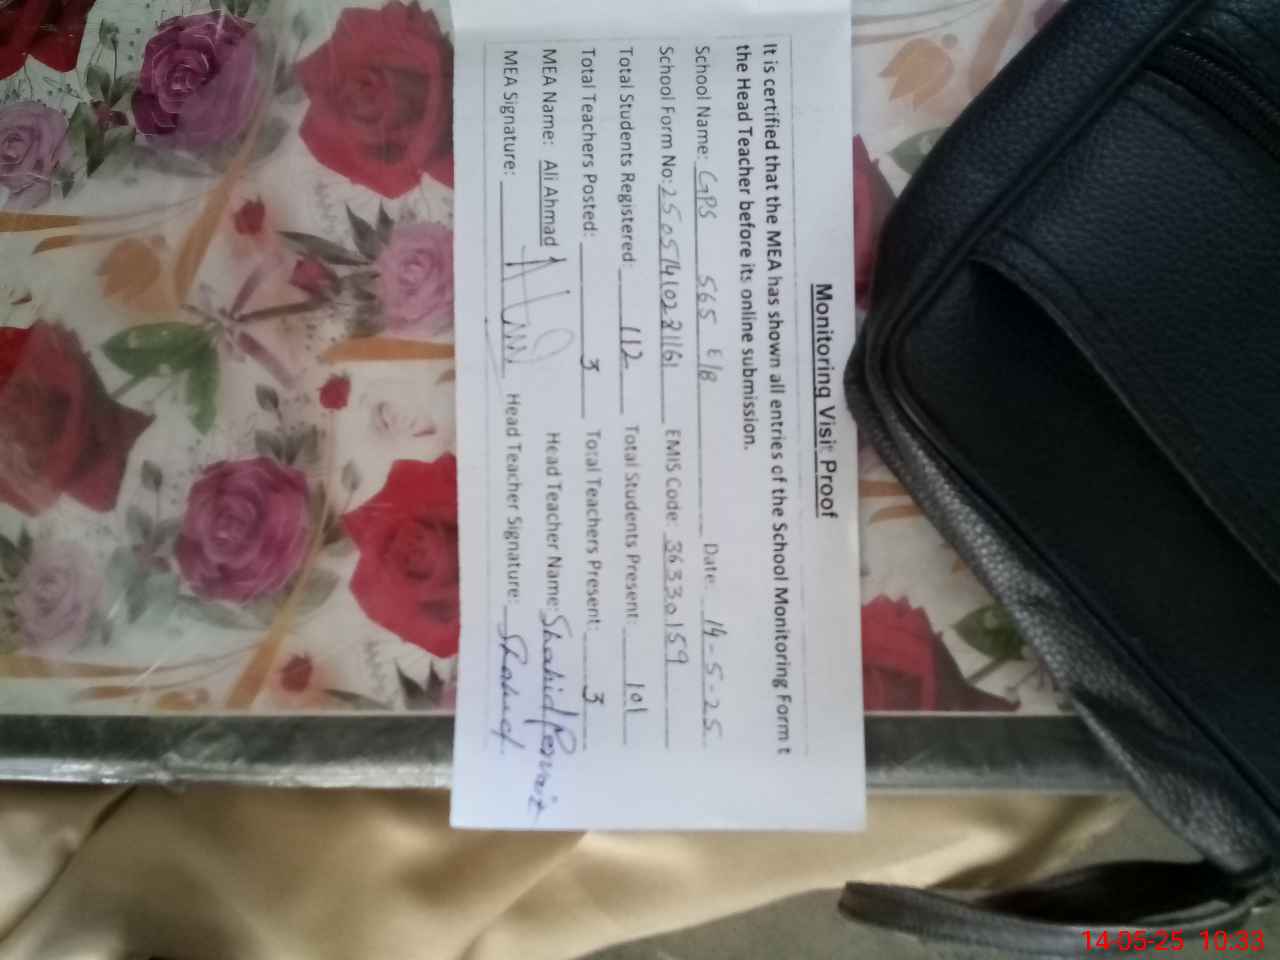 Monitoring Visit Proof
It is certified that the MEA has shown all entries of the School Monitoring Form t
the Head Teacher before its online submission.
School Name: GPS 565 E/B Date: 14-5-25
School Form No: 25051410281161 EMIS Code: 36330159
Total Students Registered: 112 Total Students Present: 101
Total Teachers Posted: 3 Total Teachers Present: 3
MEA Name: Ali Ahmad Head Teacher Name: Shahid Pervaiz
MEA Signature: Head Teacher Signature: Shahid
14-05-25 10:33